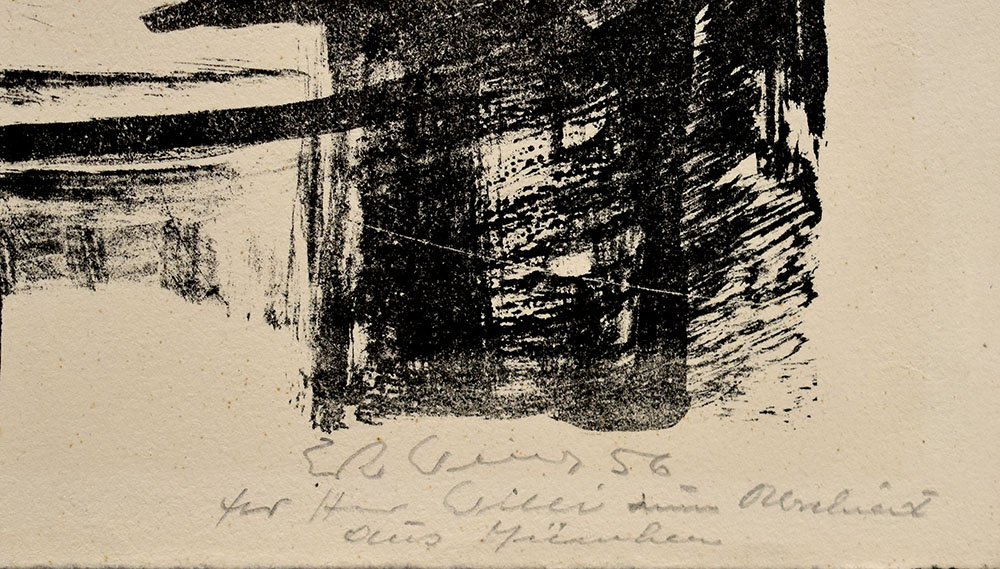 ER 56
für Herr Willi zum Abschied
aus München